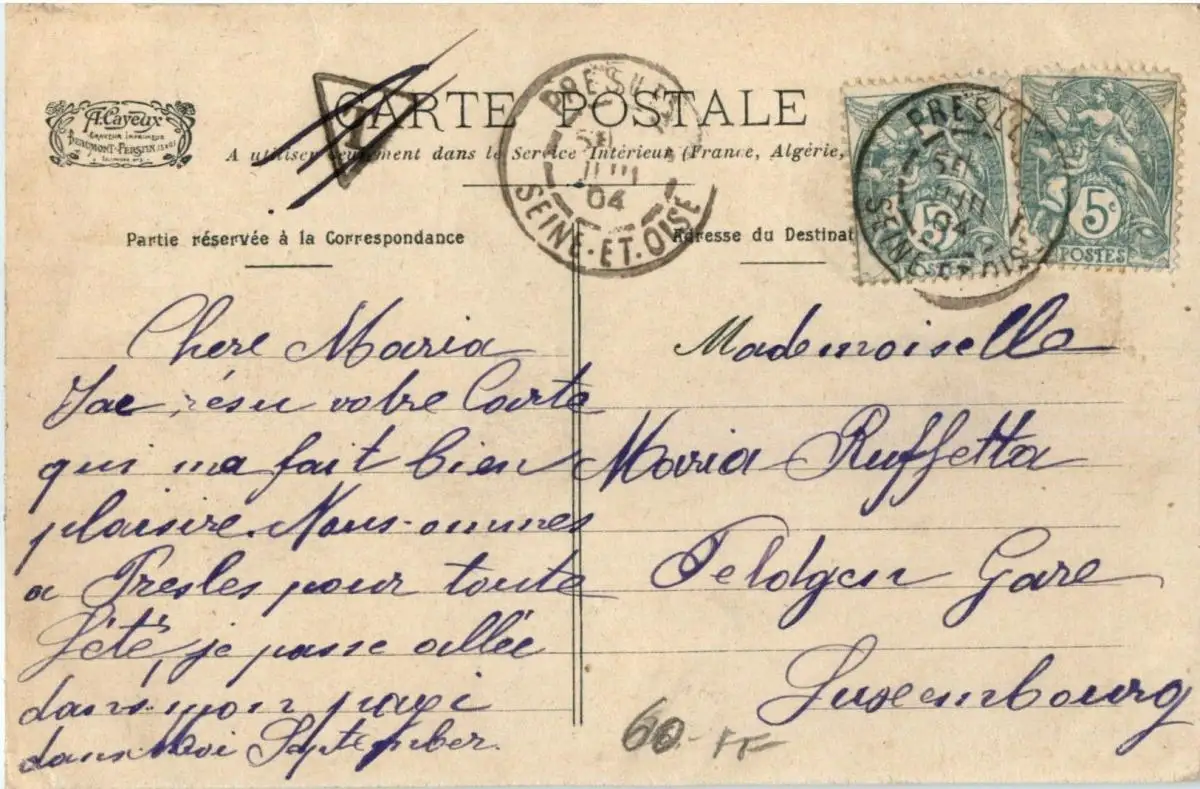 A. Cayeux
GRAVEUR IMPRIMEUR
BEAUMONT-PERSAN (S&O)
CARTE POSTALE
A utiliser seulement dans le Service Intérieur (France, Algérie,
PRESLES
JUI
04
SEINE-ET-OISE
PRESLES
JUI
04
SEINE-ET-OISE
5
5c
POSTES
Partie réservée à la Correspondance
Adresse du Destinat
Chere Maria
Jae résu votre Carte
qui ma fait bien
plaisire. Nous ommes
a Presles pour toute
l'été, je passe allée
dans mon payi
dans Moi September.
Mademoiselle
Maria Ruffetta
Feldgen Gare
Luxembourg
60.- FF